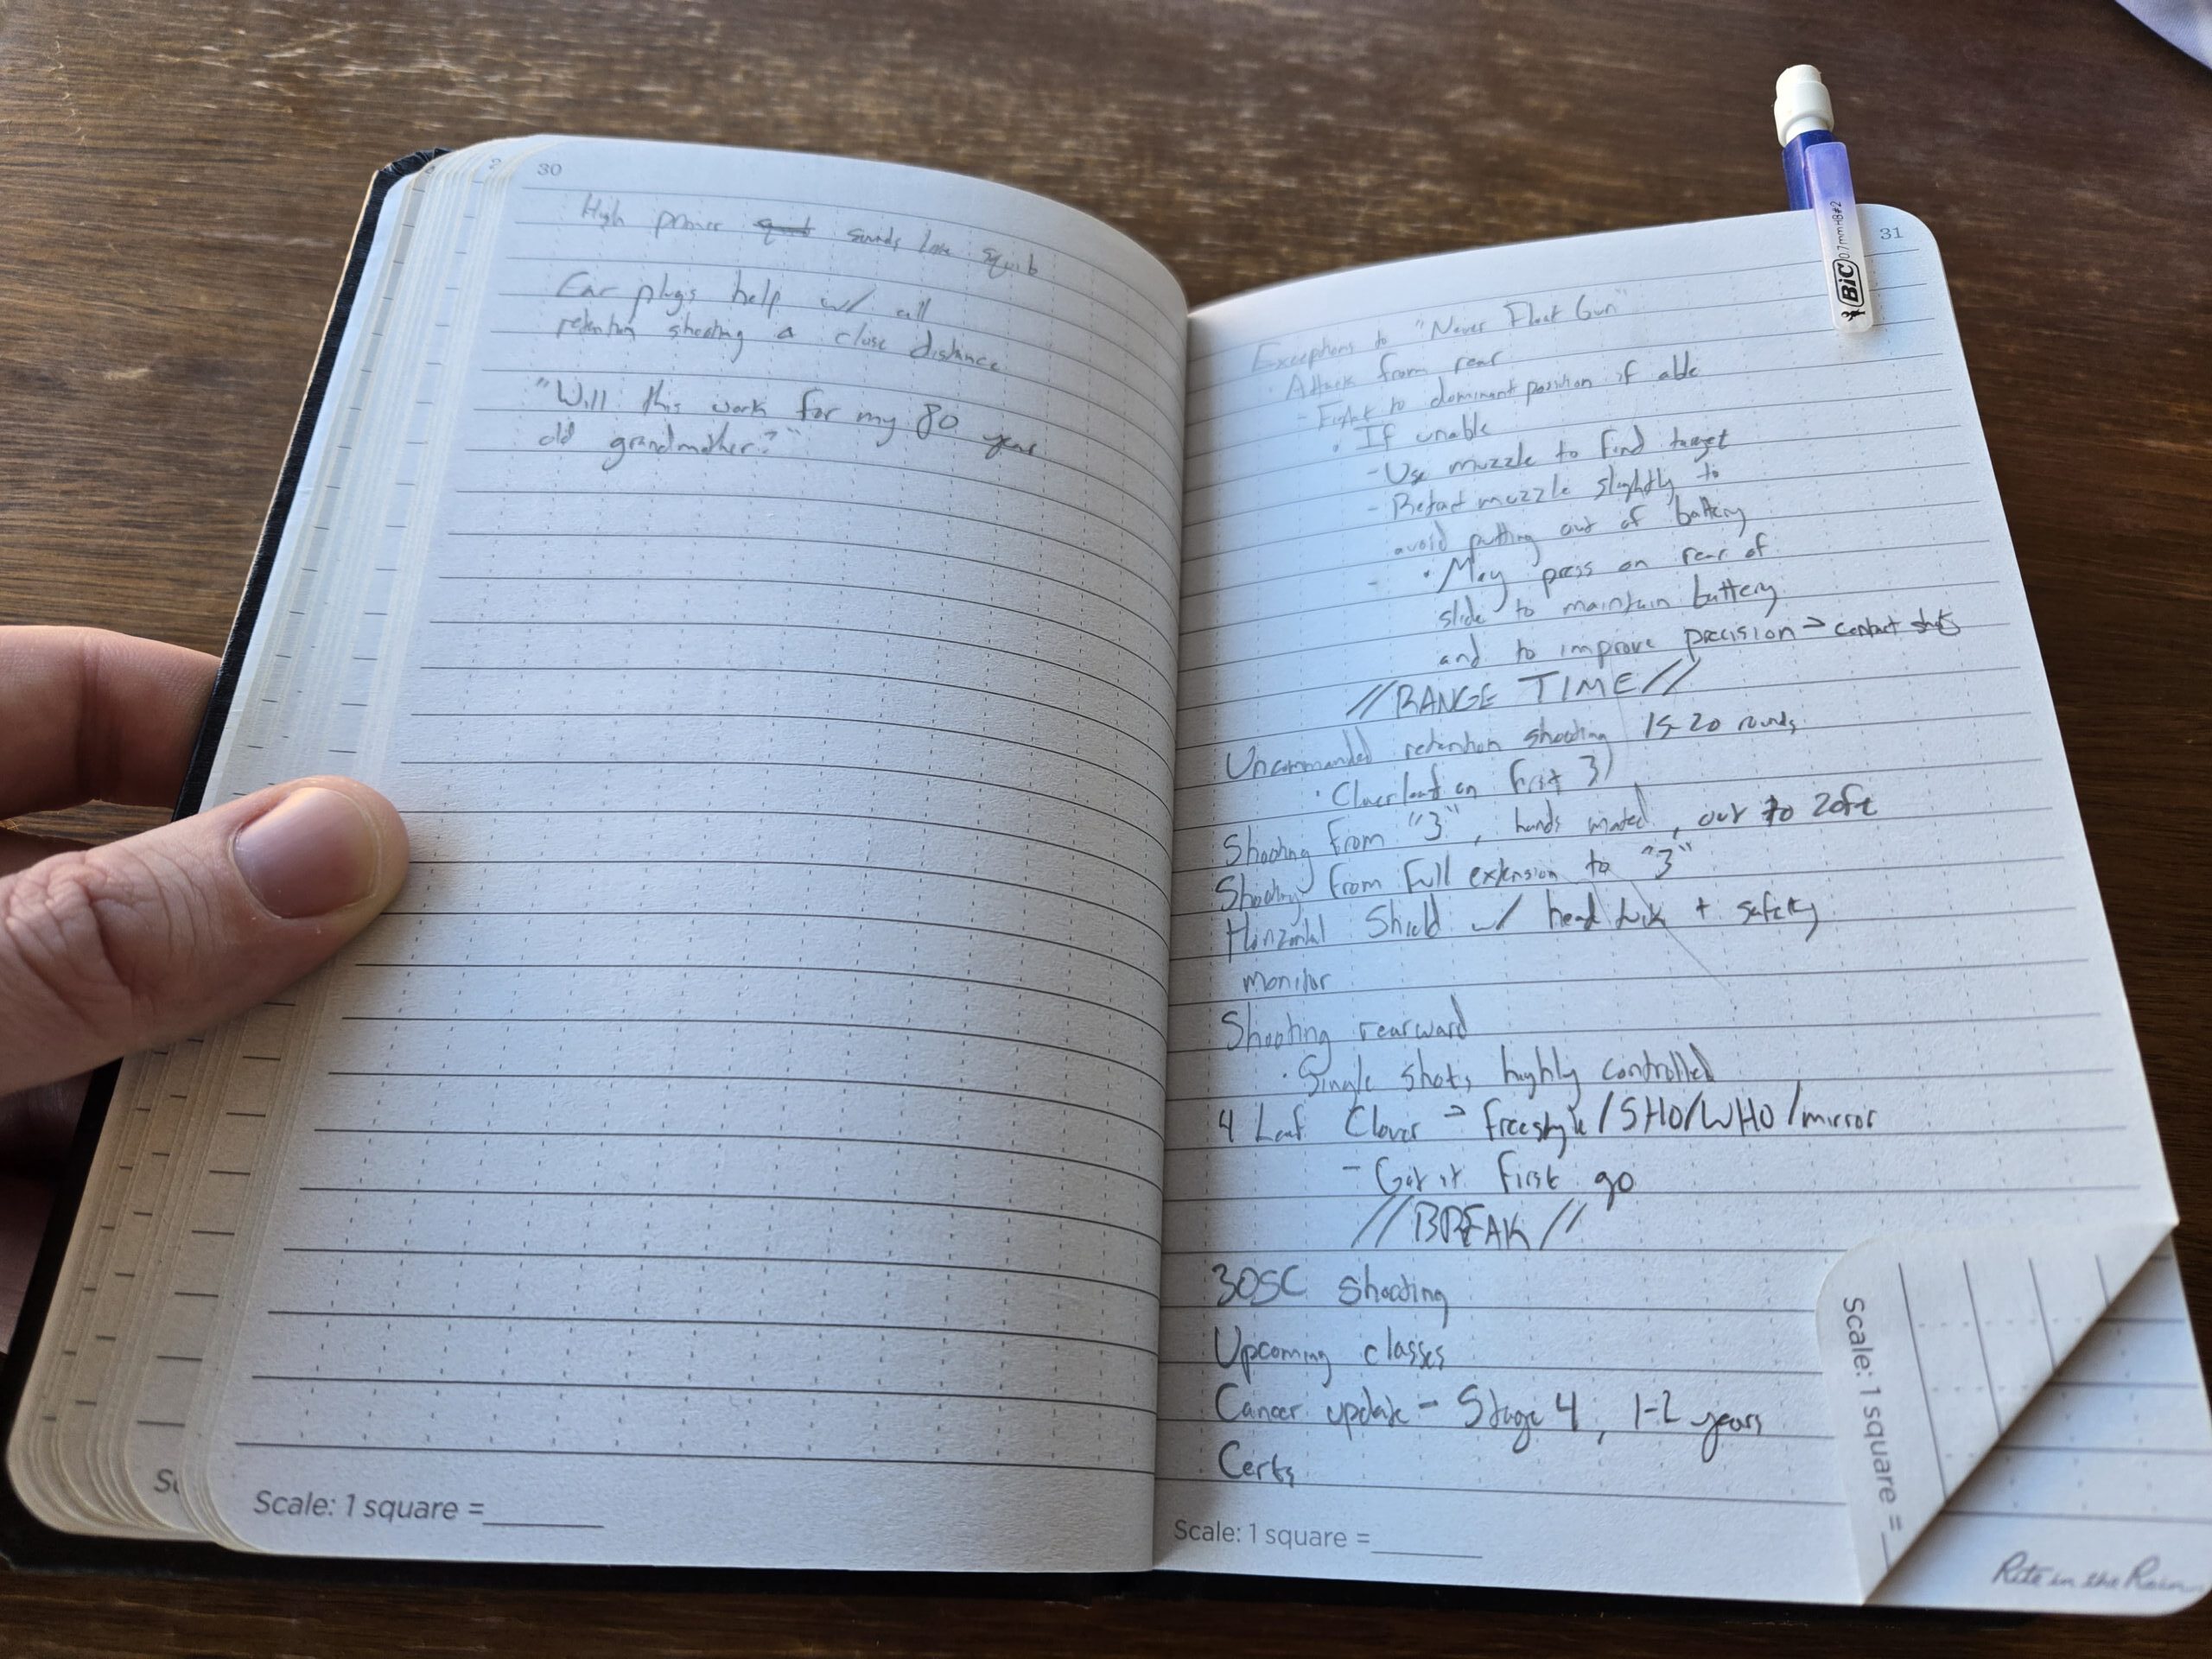 30
High primer squib sounds like squib
Ear plugs help w/ all
retention shooting a close distance
"Will this work for my 80 year
old grandmother?"
Scale: 1 square =
31
Exceptions to "Never Float Gun"
· Attack from rear
- Fight to dominant position if able
· If unable
- Use muzzle to find target
- Retract muzzle slightly to
avoid putting out of battery
- · May press on rear of
slide to maintain battery
and to improve precision → contact shots
//RANGE TIME//
Uncommanded retention shooting 15-20 rounds
· Cloverleaf on first 3)
Shooting from "3", hands mated, out to 20ft
Shooting from full extension to "3"
Horizontal Shield w/ head tuck + safety
monitor
Shooting rearward
· Single shots, highly controlled
4 Leaf Clover → freestyle/SHO/WHO/mirror
- Got it first go
//BREAK//
30SC shooting
Upcoming classes
Cancer update - Stage 4, 1-2 years
Certs
Scale: 1 square =
Scale: 1 square =
Rite in the Rain
BiC 0.7mm HB#2